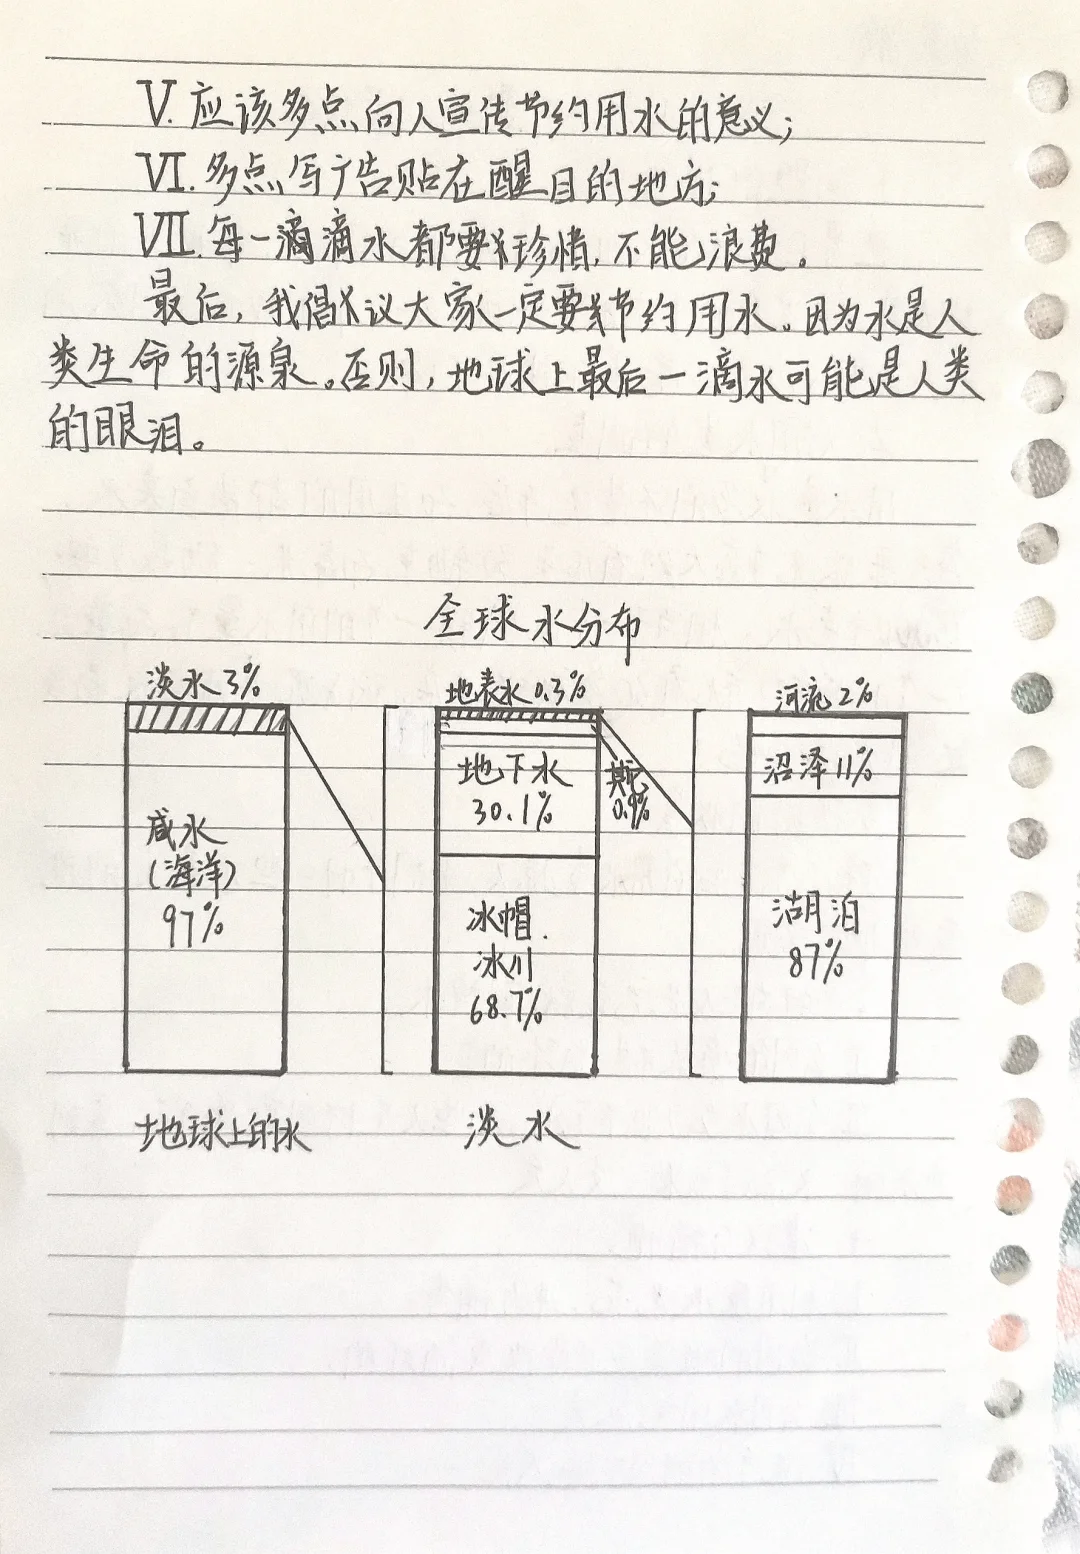 Ⅴ. 应该多点向人宣传节约用水的意义;
Ⅵ. 多点写广告贴在醒目的地方;
Ⅶ. 每一滴滴水都要珍惜, 不能浪费。
最后, 我倡议大家一定要节约用水。因为水是人
类生命的源泉。否则, 地球上最后一滴水可能是人类
的眼泪。
全球水分布
淡水 3%
咸水
(海洋)
97%
地球上的水
地表水 0.3%
地下水
30.1%
其它
0.9%
冰帽.
冰川
68.7%
淡水
河流 2%
沼泽 11%
湖泊
87%